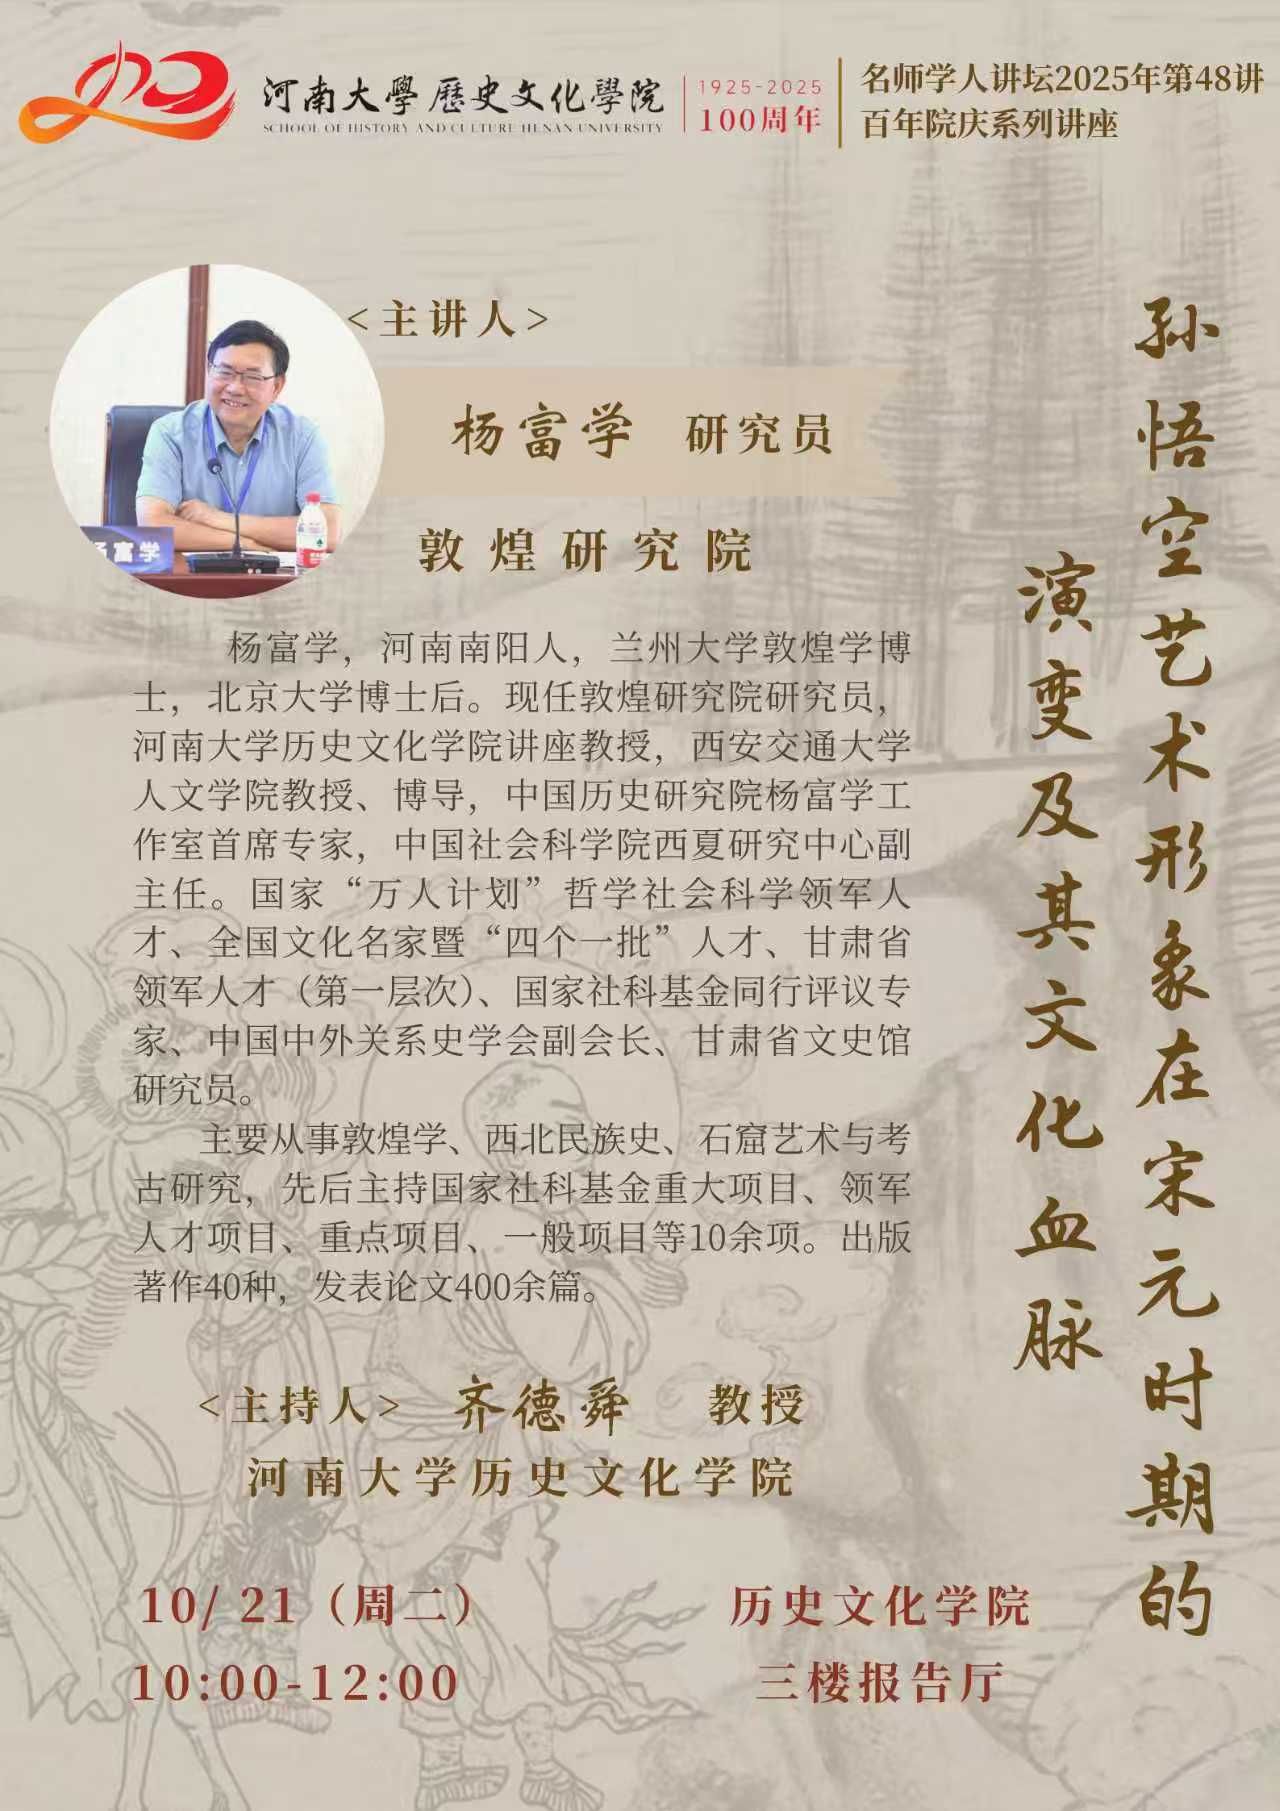 河南大學 歷史文化學院
SCHOOL OF HISTORY AND CULTURE HENAN UNIVERSITY
1925-2025
100周年
名师学人讲坛2025年第48讲
百年院庆系列讲座
孙悟空艺术形象在宋元时期的
演变及其文化血脉
<主讲人>
杨富学 研究员
敦煌研究院
杨富学
杨富学，河南南阳人，兰州大学敦煌学博
士，北京大学博士后。现任敦煌研究院研究员，
河南大学历史文化学院讲座教授，西安交通大学
人文学院教授、博导，中国历史研究院杨富学工
作室首席专家，中国社会科学院西夏研究中心副
主任。国家“万人计划”哲学社会科学领军人
才、全国文化名家暨“四个一批”人才、甘肃省
领军人才（第一层次）、国家社科基金同行评议专
家、中国中外关系史学会副会长、甘肃省文史馆
研究员。
主要从事敦煌学、西北民族史、石窟艺术与考
古研究，先后主持国家社科基金重大项目、领军
人才项目、重点项目、一般项目等10余项。出版
著作40种，发表论文400余篇。
<主持人> 齐德舜 教授
河南大学历史文化学院
10/ 21（周二）
10:00-12:00
历史文化学院
三楼报告厅